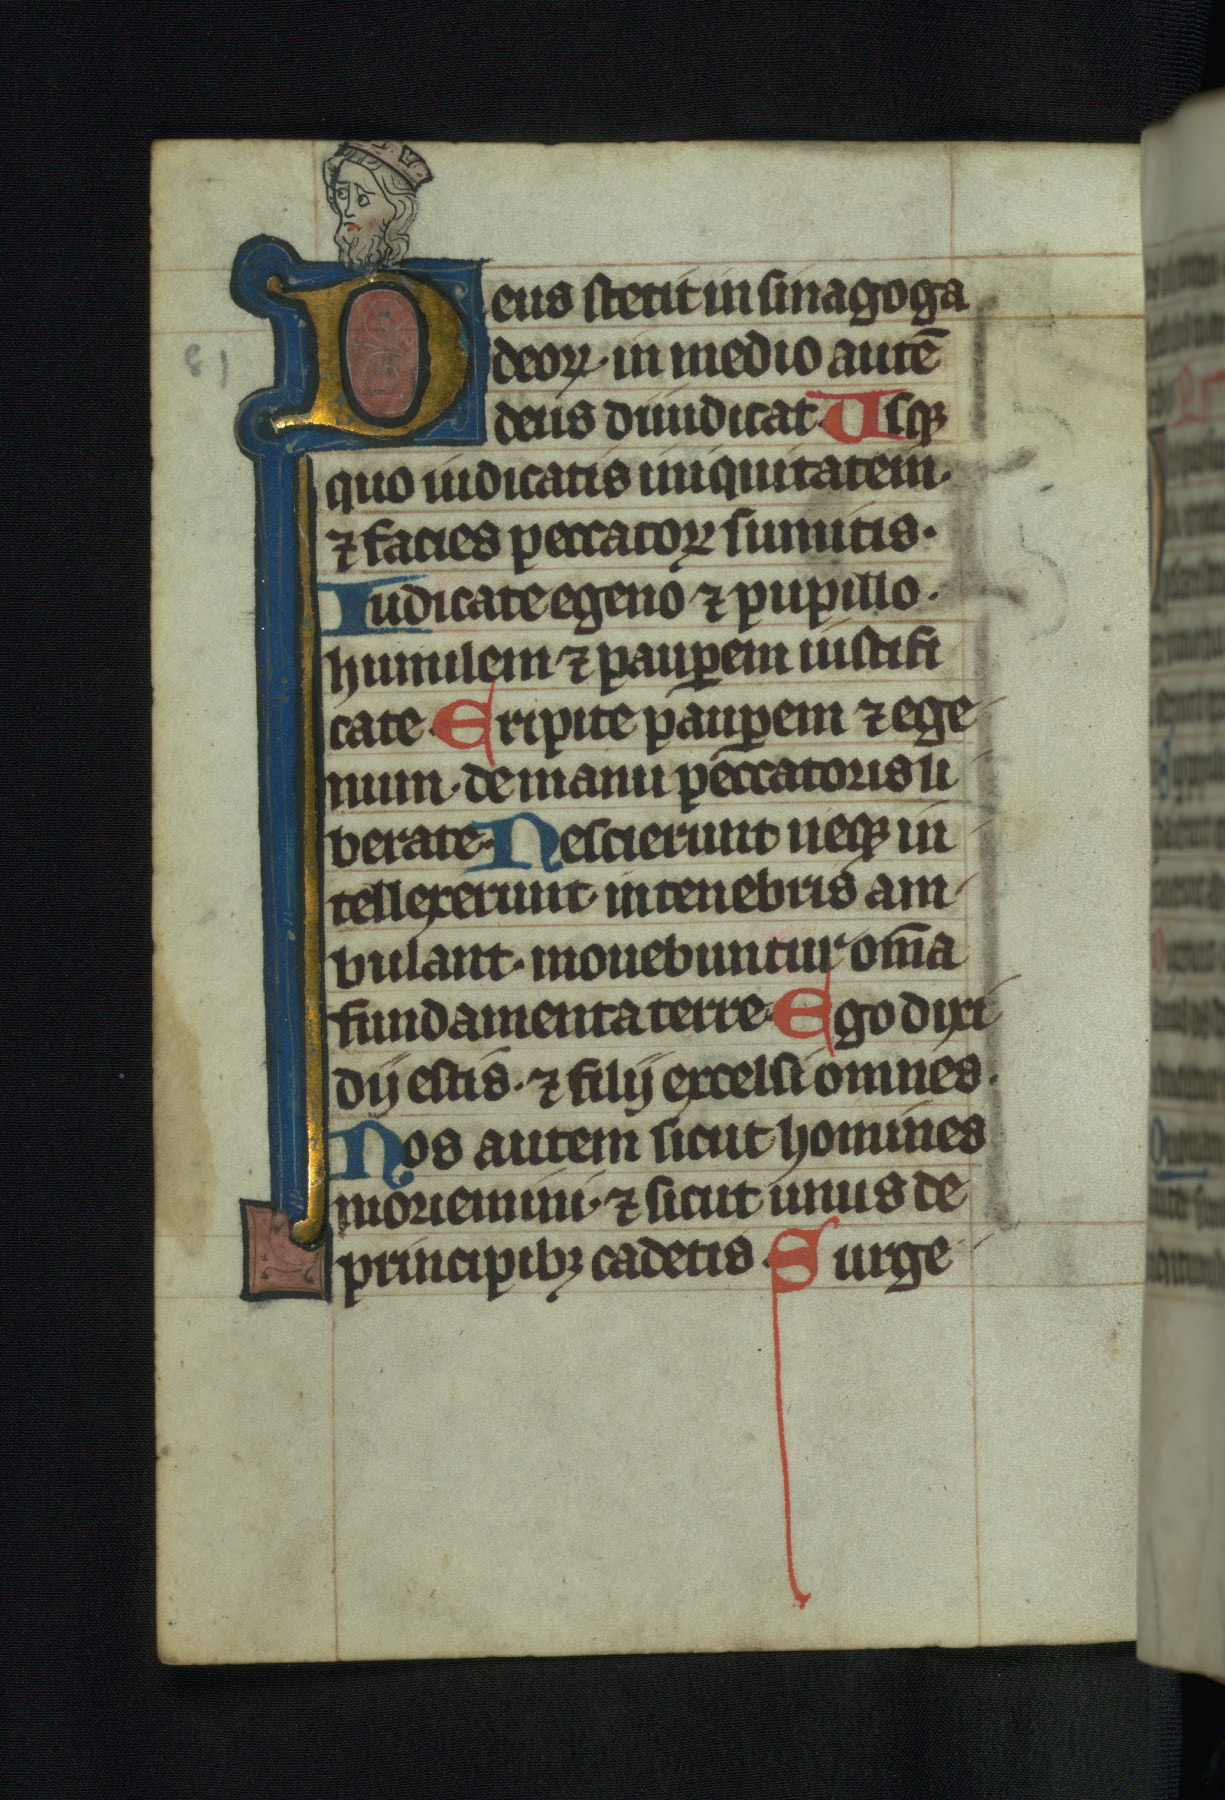 Deus stetit in sinagoga
deoꝝ· in medio autē
deus diiudicat· Usqꝫ
quo iudicatis iniquitatem·
⁊ facies peccatoꝝ sumitis·
Iudicate egeno ⁊ pupillo·
humilem ⁊ pauꝑem iustifi
cate· Eripite pauꝑem ⁊ ege
num· de manu peccatoris li
berate· Nescierunt neqꝫ in
tellexerunt· in tenebris am
bulant· mouebuntur om̄a
fundamenta terre· Ego dixi
dij estis· ⁊ filij excelsi omnes·
Nos autem sicut homines
moriemini· ⁊ sicut unus de
principibꝫ cadetis· Surge
81